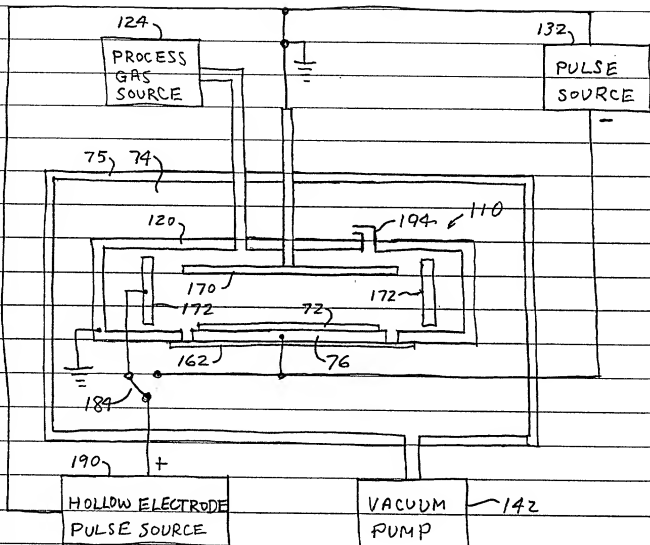 124
PROCESS
GAS
SOURCE
132
PULSE
SOURCE
-
75
74
120
194
110
170
172
172
72
162
76
184
190
+
HOLLOW ELECTRODE
PULSE SOURCE
VACUUM
PUMP
142